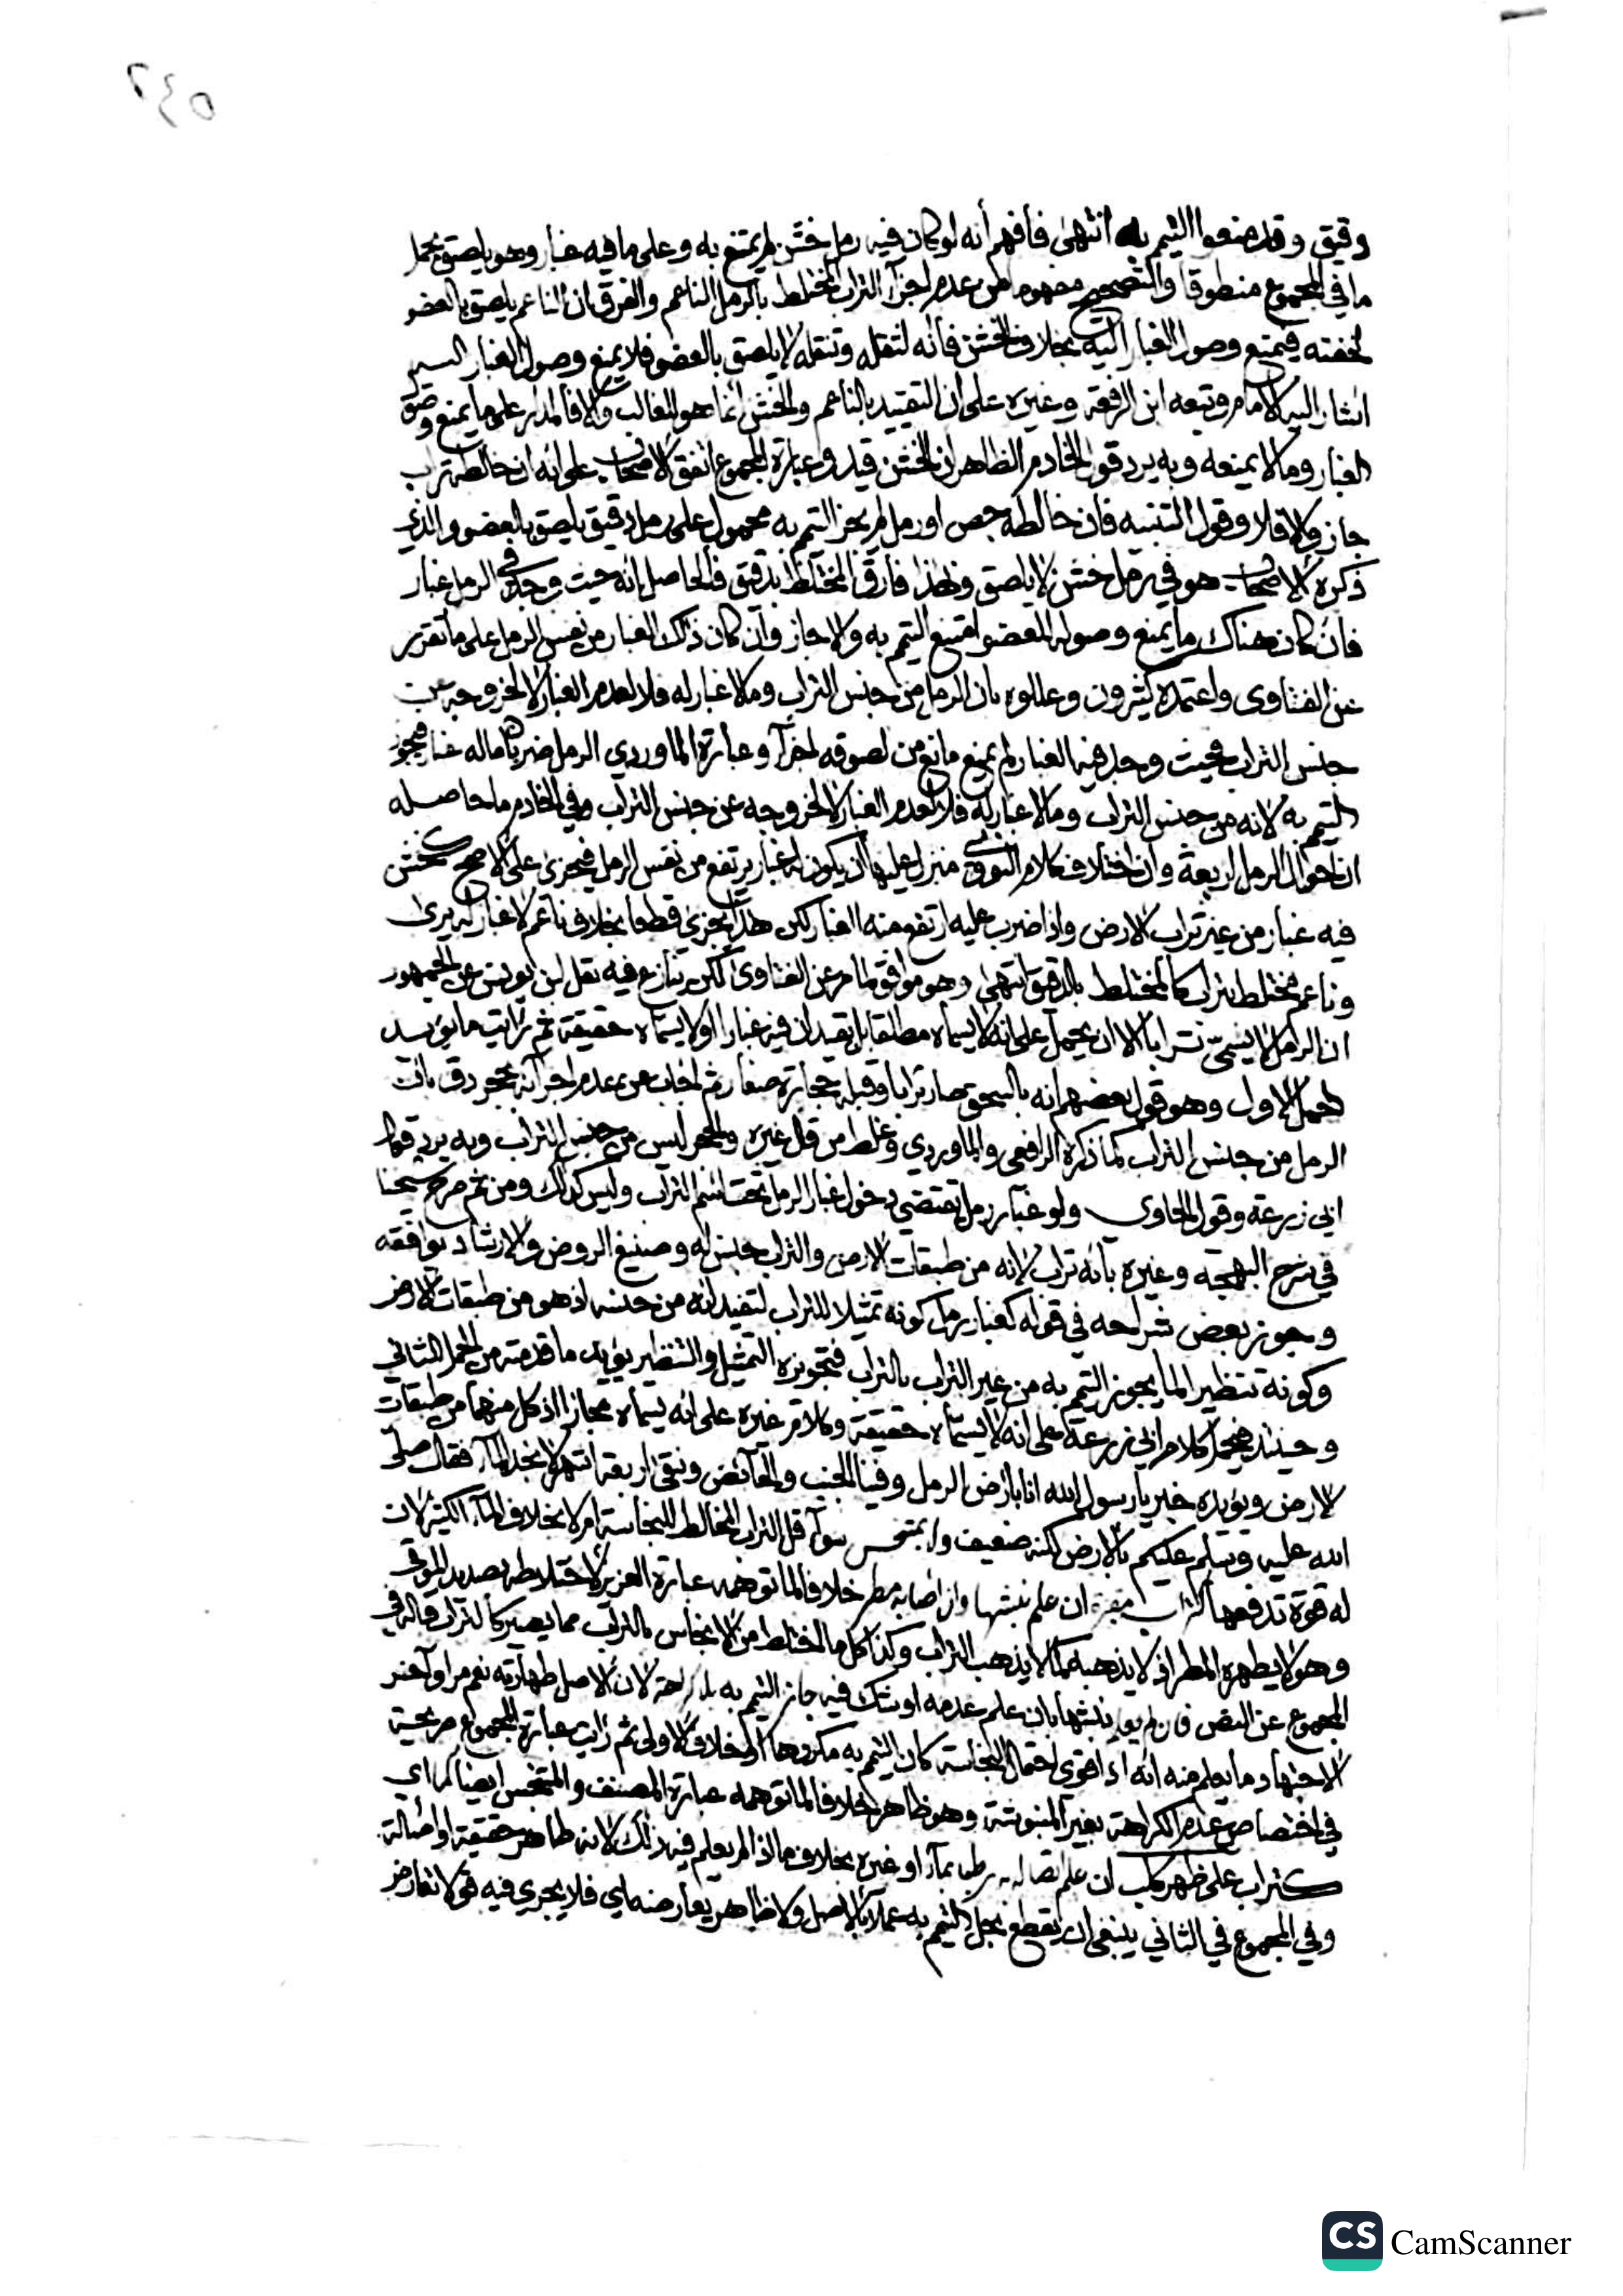 ٥٤٢
دقيق وقد منعوا التيمم به انتهى فأفهم أنه لو كان فيه رمل خشن لم يمتنع به وعلى ما فيه غبار وهو يلصق يحمل
ما في المجموع منطوقا والتصحيح مفهوما من عدم اجزآ التراب المختلط بالرمل الناعم والفرق ان الناعم يلصق بالعضو
لخفته فيمنع وصول الغبار اليه بخلاف الخشن فانه لثقله لا يلصق بالعضو فلا يمنع وصول الغبار
اشار اليه الامام وتبعه ابن الرفعة وغيره على ان التقييد بالناعم والخشن انما هو للغالب والا فالمدار على ما يمنع وصول
الغبار وما لا يمنعه وبه يرد قول الخادم الظاهر ان الخشن قيد وعبارة المجموع اتفق الاصحاب على انه ان خالطه تراب
جاز والا فلا وقول التنبيه فان خالطه جص او رمل لم يجز التيمم به محمول على رمل دقيق يلصق بالعضو والذي
ذكره الاصحاب هو في رمل خشن لا يلصق ولهذا فارق المختلط بدقيق فالحاصل انه حيث وجد في الرمل غبار
فان كان هناك ما يمنع وصوله للعضو امتنع التيمم به والا جاز وان كان ذلك الغبار من نفس الرمل على ما تقرر
عن الفتاوى واعتمده كثيرون وعللوه بان الرمل من جنس التراب وما لا غبار له فلا لعدم الغبار لا لخروجه عن
جنس التراب فحيث وجد فيه الغبار ولم يمنع مانع من لصوقه اجزآ وعبارة الماوردي الرمل ضربان ما له غبار فيجوز
التيمم به لانه من جنس التراب وما لا غبار له فلا لعدم الغبار لا لخروجه عن جنس التراب وفي الخادم ما حاصله
ان احوال الرمل اربعة وان اختلاف كلام النووي منزل عليها ان يكون له غبار يرتفع من نفس الرمل فيجزى على الاصح خشن
فيه غبار من غير تراب الارض واذا ضرب عليه ارتفع منه الغبار لكن هذا يجزى قطعا بخلاف ناعم لا غبار له يرى
وناعم مختلط بتراب كالمختلط بالدقيق انتهى وهو موافق لما مر عن الفتاوى لكن ينازع فيه نقل ابن يونس عن الجمهور
ان الرمل لا يسمى ترابا الا ان يحمل على انه لا يسماه مطلقا بل بقيد ان فيه غبارا او لا يسماه حقيقة ثم رأيت ما يؤيد
الحمل الاول وهو قول بعضهم انه بالسحق صار ترابا وقبله حجارة صغار ثم اجاب عن عدم اجزآئه بحجر دق بان
الرمل من جنس التراب كما ذكره الرافعي والماوردي وغلط من قال غيره والحجر ليس من جنس التراب وبه يرد قول
ابي زرعة وقول الحاوي ولو غبار رمل يقتضي دخول غبار الرمل تحت اسم التراب وليس كذلك ومن ثم صرح شيخنا
في شرح البهجة وغيره بانه تراب لانه من طبقات الارض والتراب جنس له وصنيع الروض والارشاد يوافقه
وجوز بعض شراحه في قوله كغبار رمل كونه تمثيلا للتراب لتفيد انه من جنسه اذ هو من طبقات الارض
وكونه تنظيرا لما يجوز التيمم به من غير التراب بالتراب فتجويزه التمثيل والتنظير يؤيد ما قدمته من الحمل الثاني
وحينئذ فيحمل كلام ابي زرعة على انه لا يسماه حقيقة وكلام غيره على انه يسماه مجازا اذ كل منهما من طبقات
الارض ويؤيده خبر يا رسول الله انا بارض الرمل وفينا الجنب والحائض ونبقى اربعة اشهر لا نجد الماء فقال صلى
الله عليه وسلم عليكم بالارض لكنه ضعيف ولا بمتنجس سوآ قل التراب المخالط للنجاسة ام لا بخلاف المآء الكثير لان
له قوة تدفعها كتراب مقبرة ان علم نبشها وان اصابه مطر خلافا لما توهمه عبارة العزيز لاختلاطه بصديد الموتى
وهو لا يطهره المطر اذ لا يذهبه كما لا يذهب التراب وكذا كل ما اختلط من الانجاس بالتراب مما يصير كالتراب قاله في
المجموع عن النص فان لم يعلم نبشها بان علم عدمه او شك فيه جاز التيمم به بلا كراهة لان الاصل طهارته نعم مر اواخر
الاجتهاد وما يعلم منه انه اذا قوى احتمال النجاسة كان التيمم به مكروها او خلاف الاولى ثم رأيت عبارة المجموع صريحة
في اختصاص عدم الكراهة بغير المنبوشة وهو ظاهر خلافا لما توهمه عبارة المصنف والمتنجس ايضا كما اي
كتراب على ظهر كلب ان علم اتصاله به رطبا بمآء او غيره بخلاف ما اذا لم يعلم فيه ذلك لانه طاهر حقيقة او اصالة
وفي المجموع في الثاني ينبغي ان يقطع بحل التيمم به عملا بالاصل ولا ظاهر يعارضه اي فلا يجري فيه قولا تعارض
CS CamScanner